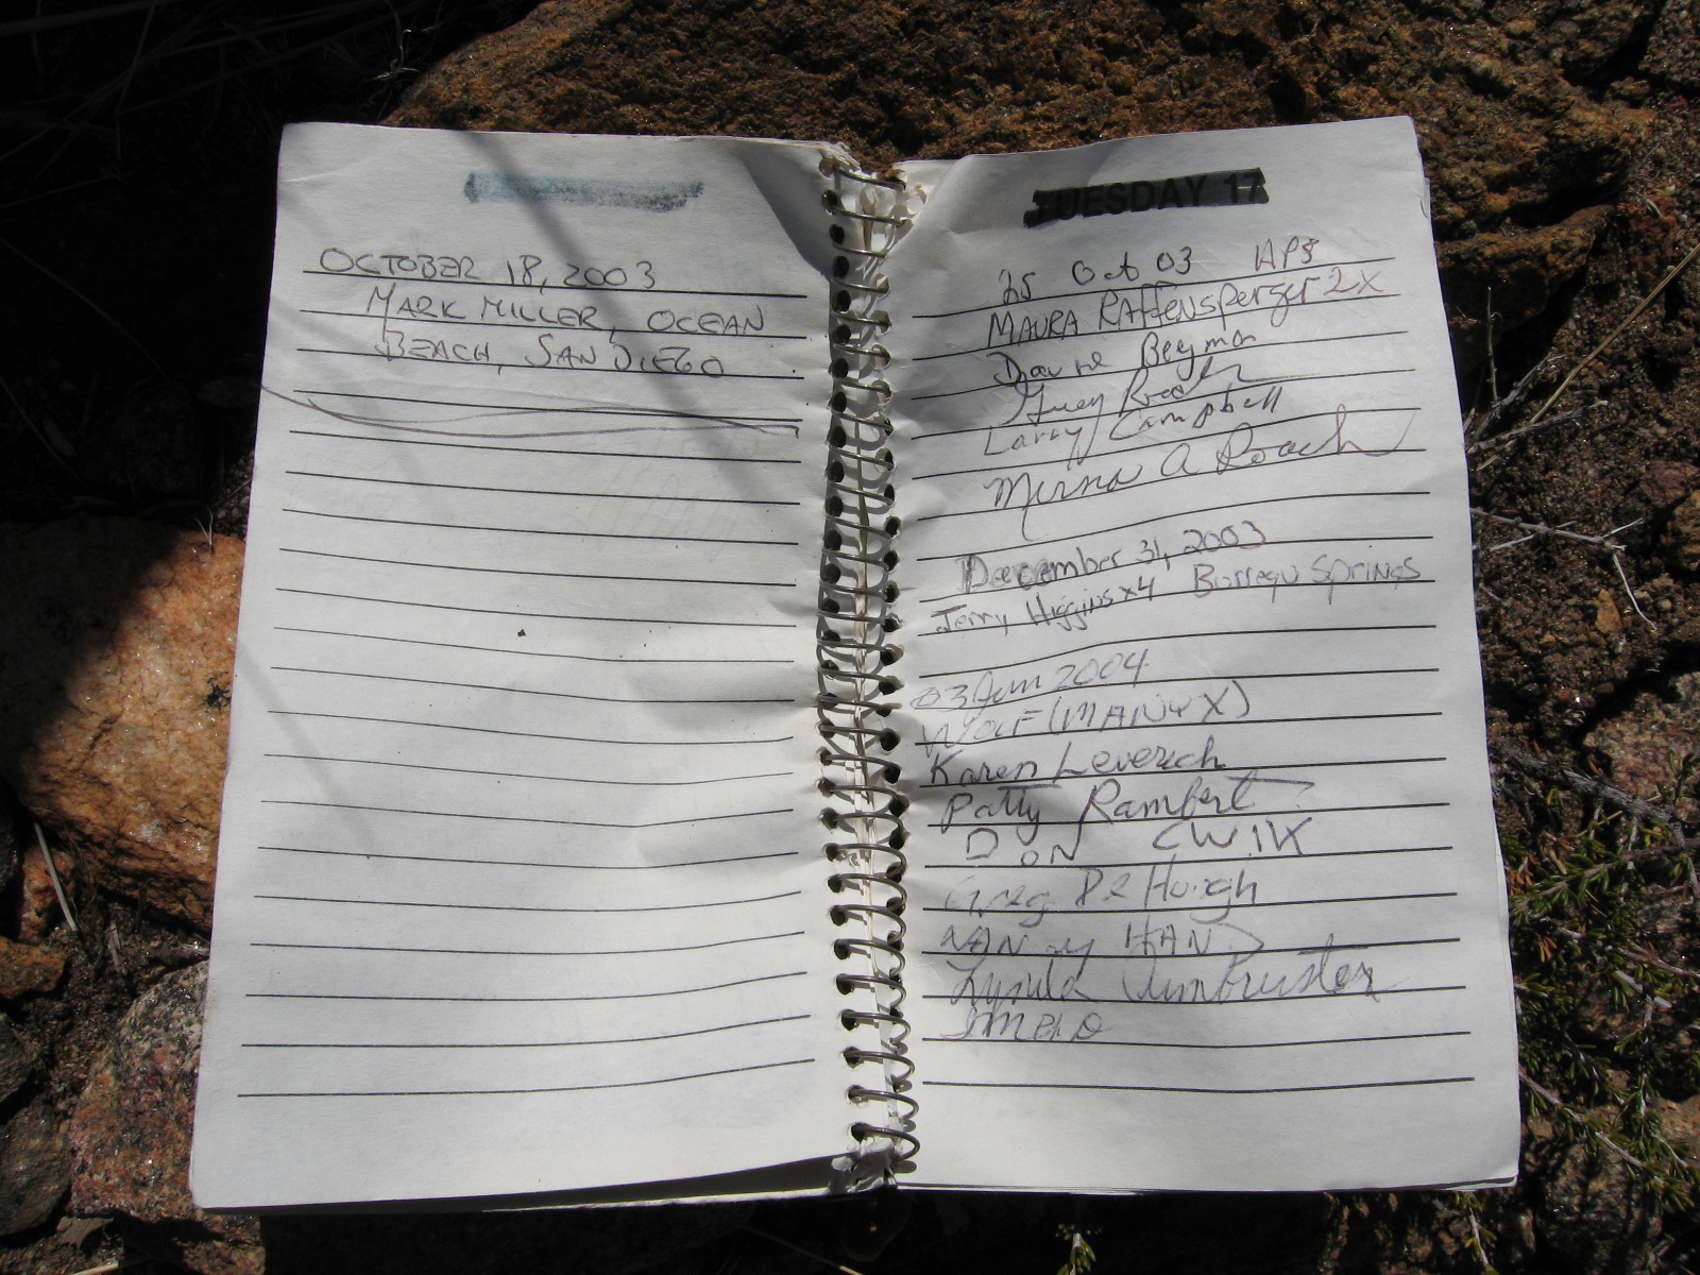 OCTOBER 18, 2003
MARK MILLER, OCEAN
BEACH, SAN DIEGO
TUESDAY 17
25 Oct 03 HPS
MAURA Raffensperger 2x
Larry Campbell
Mirna A Roach
December 31, 2003
Jerry Higgins x4 Borrego Springs
03 Jan 2004
WOLF (MANY X)
Karen Leverich
Patty Rambert
DON CWIK
Greg De Hoogh
Lynda Armbruster